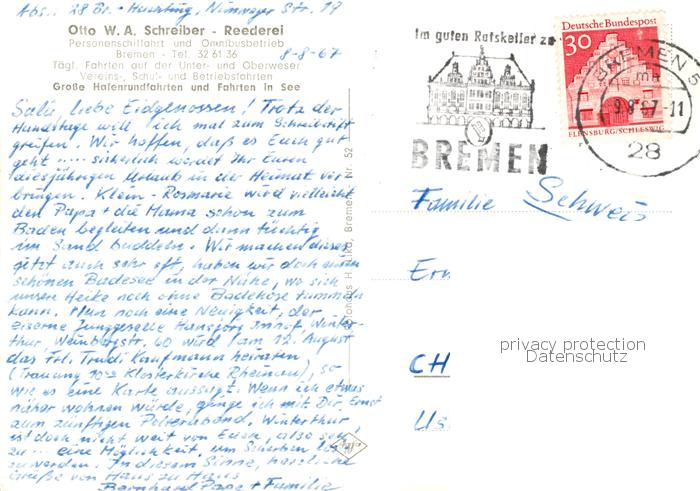 Abs.: 28 Br.- Huchting, Str. 17
Otto W. A. Schreiber - Reederei
Personenschiffahrt und Omnibusbetrieb
Bremen - Tel. 32 61 36
8-8-67
Tägl. Fahrten auf der Unter- und Oberweser
Vereins-, Schul- und Betriebsfahrten
Große Hafenrundfahrten und Fahrten in See
Salü, liebe Eidgenossen! Trotz der
Hundstage will ich mal zum Schreibstift
greifen. Wir hoffen, daß es Euch gut
geht .... sicherlich werdet Ihr Euren
diesjährigen Urlaub in der Heimat ver-
bringen. Klein-Rosmarie wird vielleicht
den Papa + die Mama schon zum
Baden begleiten und dann tüchtig
im Sand buddeln. Wir machen dieses
jetzt auch sehr oft, haben wir doch einen
schönen Badesee in der Nähe, wo sich
unsere Heike noch ohne Badehose tummeln
kann. Nun noch eine Neuigkeit, der
eiserne Junggeselle Hansjörg Imhof, Winter-
thur, Weinbergstr. 60 wird am 12. August
das Frl. Trudi Kaufmann heiraten,
(Trauung Klosterkirche Rheinau), so
wie es eine Karte aussagt. Wenn ich etwas
näher wohnen würde, ginge ich mit Dir, Ernst
zum zünftigen Polterabend. Winterthur
ist doch nicht weit von Euch, also
zu ... eine Möglichkeit, um Scherben
zu werden. In diesem Sinne, herzliche
Grüße von Haus zu Haus
Bernhard Pape + Familie
Bremen Nr. 52
Im guten Ratskeller zu
BREMEN
Deutsche Bundespost
30
FLENSBURG/SCHLESWIG
BREMEN 5
9.8.67-11
28
Familie Schweiz
Ern
CH
Us
privacy protection
Datenschutz